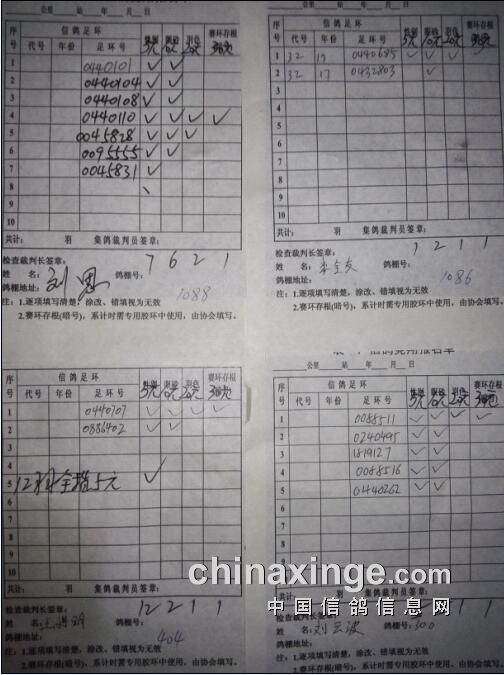 公里 站 年 月 日
序号 信鸽足环 赛环存根
代号 年份 足环号
1 0440101 ✓ ✓
2 0440104 ✓ ✓
3 0440108 ✓ ✓
4 0440110 ✓ ✓ ✓ ✓
5 0045828 ✓ ✓ ✓
6 0095555 ✓ ✓
7 0045831 ✓
8
9
10
共计: 羽 集鸽裁判员签章:
检查裁判长签章: 7 6 2 1
姓 名: 刘 鸽棚号:
鸽棚地址: 1088
注: 1.逐项填写清楚,涂改、错填视为无效
2.赛环存根(暗号),系计时需专用胶环中使用,由协会填写。
公里 站 年 月 日
序号 信鸽足环 赛环存根
代号 年份 足环号
1 32 19 0440685 ✓ ✓ ✓ ✓
2 32 17 0432803 ✓
3
4
5
6
7
8
9
10
共计: 羽 集鸽裁判员签章:
检查裁判长签章: 1 2 1 1
姓 名: 鸽棚号:
鸽棚地址: 1086
注: 1.逐项填写清楚,涂改、错填视为无效
2.赛环存根(暗号),累计时需专用胶环中使用,由协会填写。
序号 信鸽足环 赛环存根
代号 年份 足环号
1 0440707 ✓ ✓ ✓ ✓
2 0886402 ✓ ✓
3
4
5 12羽全 5元 ✓
6
7
8
9
10
共计: 羽 集鸽裁判员签章:
检查裁判长签章: 12 2 1 1
姓 名: 鸽棚号:
鸽棚地址: 404
注: 1.逐项填写清楚,涂改、错填视为无效
2.赛环存根(暗号),系计时需专用胶环中使用,由协会填写。
公里 站 年 月 日
序号 信鸽足环 赛环存根
代号 年份 足环号
1 0088511 ✓ ✓ ✓ ✓
2 0240495 ✓ ✓
3 1819127 ✓ ✓
4 0088516 ✓ ✓
5 0440262 ✓ ✓
6
7
8
9
10
chinaxinge.com
中国信鸽信息网
检查裁判长签章:
姓 名: 刘 波 鸽棚号: 300
鸽棚地址:
注: 1.逐项填写清楚,涂改、错填视为无效
2.赛环存根(暗号),累计时需专用胶环中使用,由协会填写。